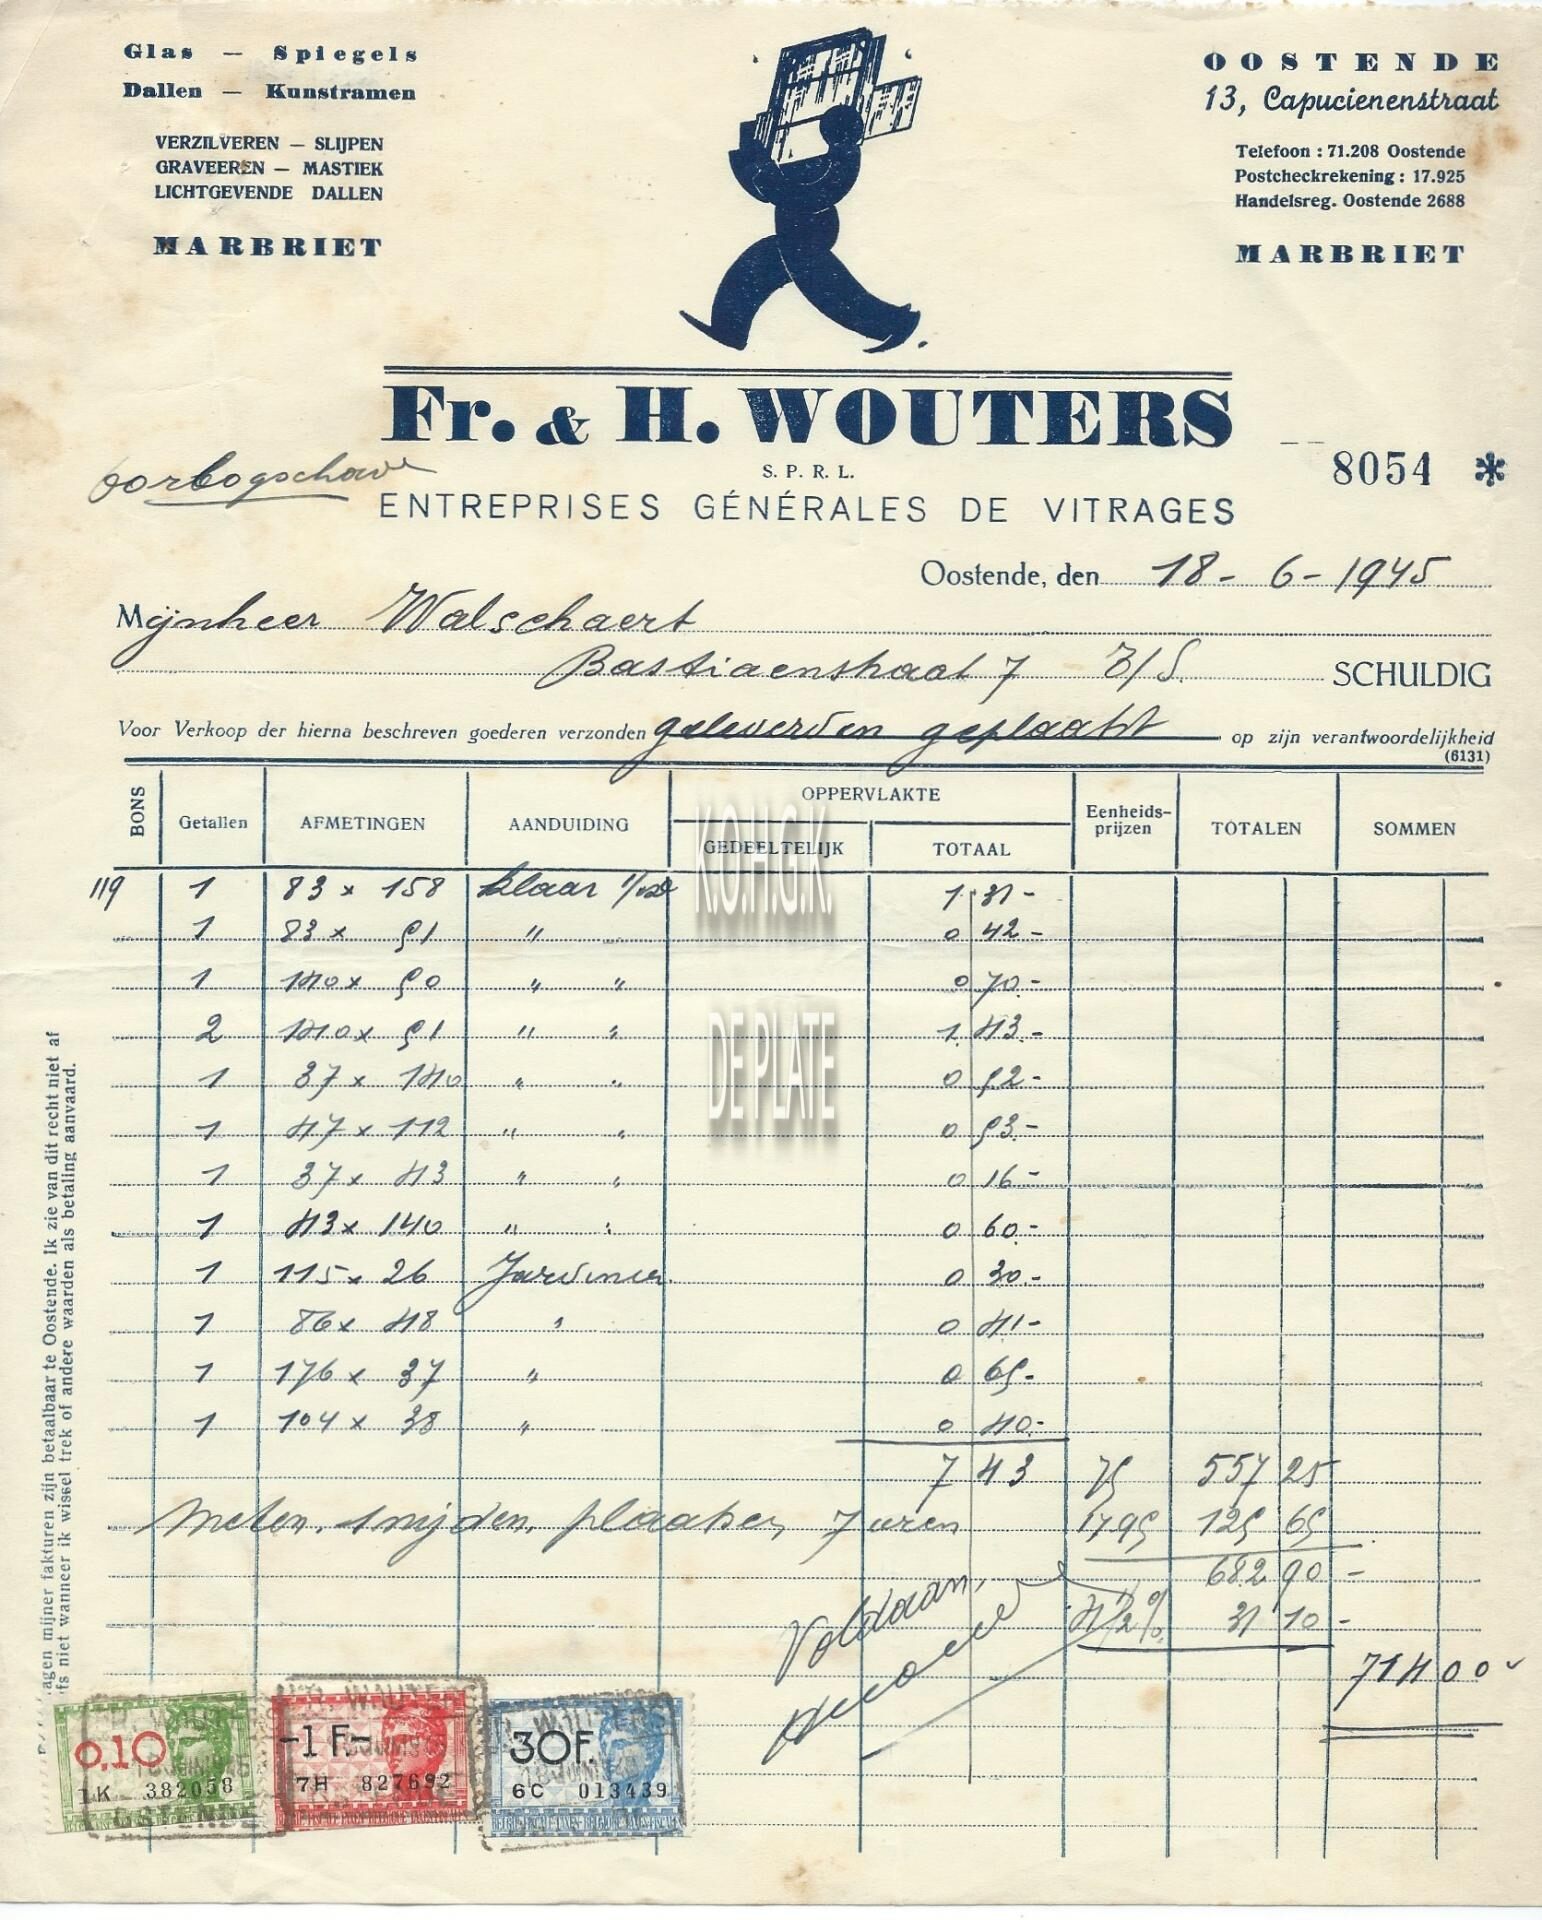 Glas — Spiegels
Dallen — Kunstramen
VERZILVEREN — SLIJPEN
GRAVEEREN — MASTIEK
LICHTGEVENDE DALLEN
MARBRIET
OOSTENDE
13, Capucienenstraat
Telefoon : 71.208 Oostende
Postcheckrekening : 17.925
Handelsreg. Oostende 2688
MARBRIET
Fr. & H. WOUTERS
S. P. R. L.
ENTREPRISES GÉNÉRALES DE VITRAGES
oorlogschade
8054 *
Oostende, den 18 - 6 - 1945
Mijnheer Walschaert
Bastiaenstraat 7 E/S. SCHULDIG
Voor Verkoop der hierna beschreven goederen verzonden geleverd en geplaatst op zijn verantwoordelijkheid
(6131)
BONS Getallen AFMETINGEN AANDUIDING OPPERVLAKTE Eenheids-prijzen TOTALEN SOMMEN
GEDEELTELIJK TOTAAL
119 1 83 x 158 klaar 1 31 -
1 83 x 51 " " 0 42 -
1 140 x 50 " " 0 70 -
2 140 x 51 " " 1 43 -
1 37 x 140 " " 0 52 -
1 47 x 112 " " 0 53 -
1 37 x 43 " " 0 16 -
1 43 x 140 " " 0 60 -
1 115 x 26 Jardinier 0 30 -
1 86 x 48 " 0 41 -
1 176 x 37 " 0 65 -
1 104 x 38 " 0 40 -
7 43 75 557 25
Meten, snijden, plaatsen 7 uren 17 95 125 65
682 90 -
4 1/2 % 31 10 -
714 00
Voldaan,
K.O.H.G.K.
DE PLATE
agen mijner fakturen zijn betaalbaar te Oostende. Ik zie van dit recht niet af
fs niet wanneer ik wissel trek of andere waarden als betaling aanvaard.
0,10
1K 382058
OSTENDE
-1 F.-
7H 827692
30F.
6C 013439